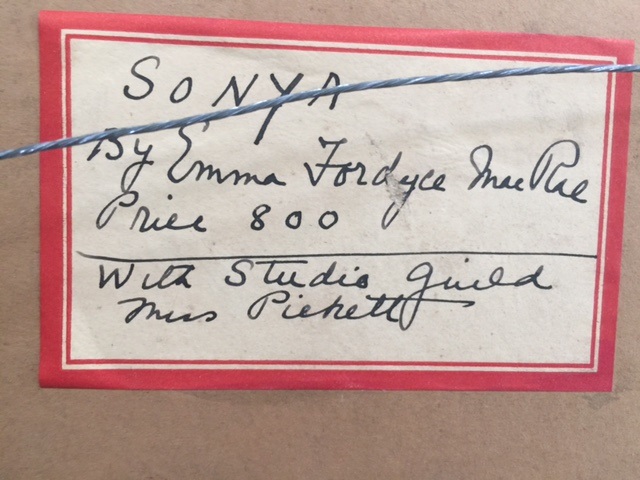 SONYA
By Emma Fordyce MacRae
Price 800
With Studio Guild
Miss Pickett